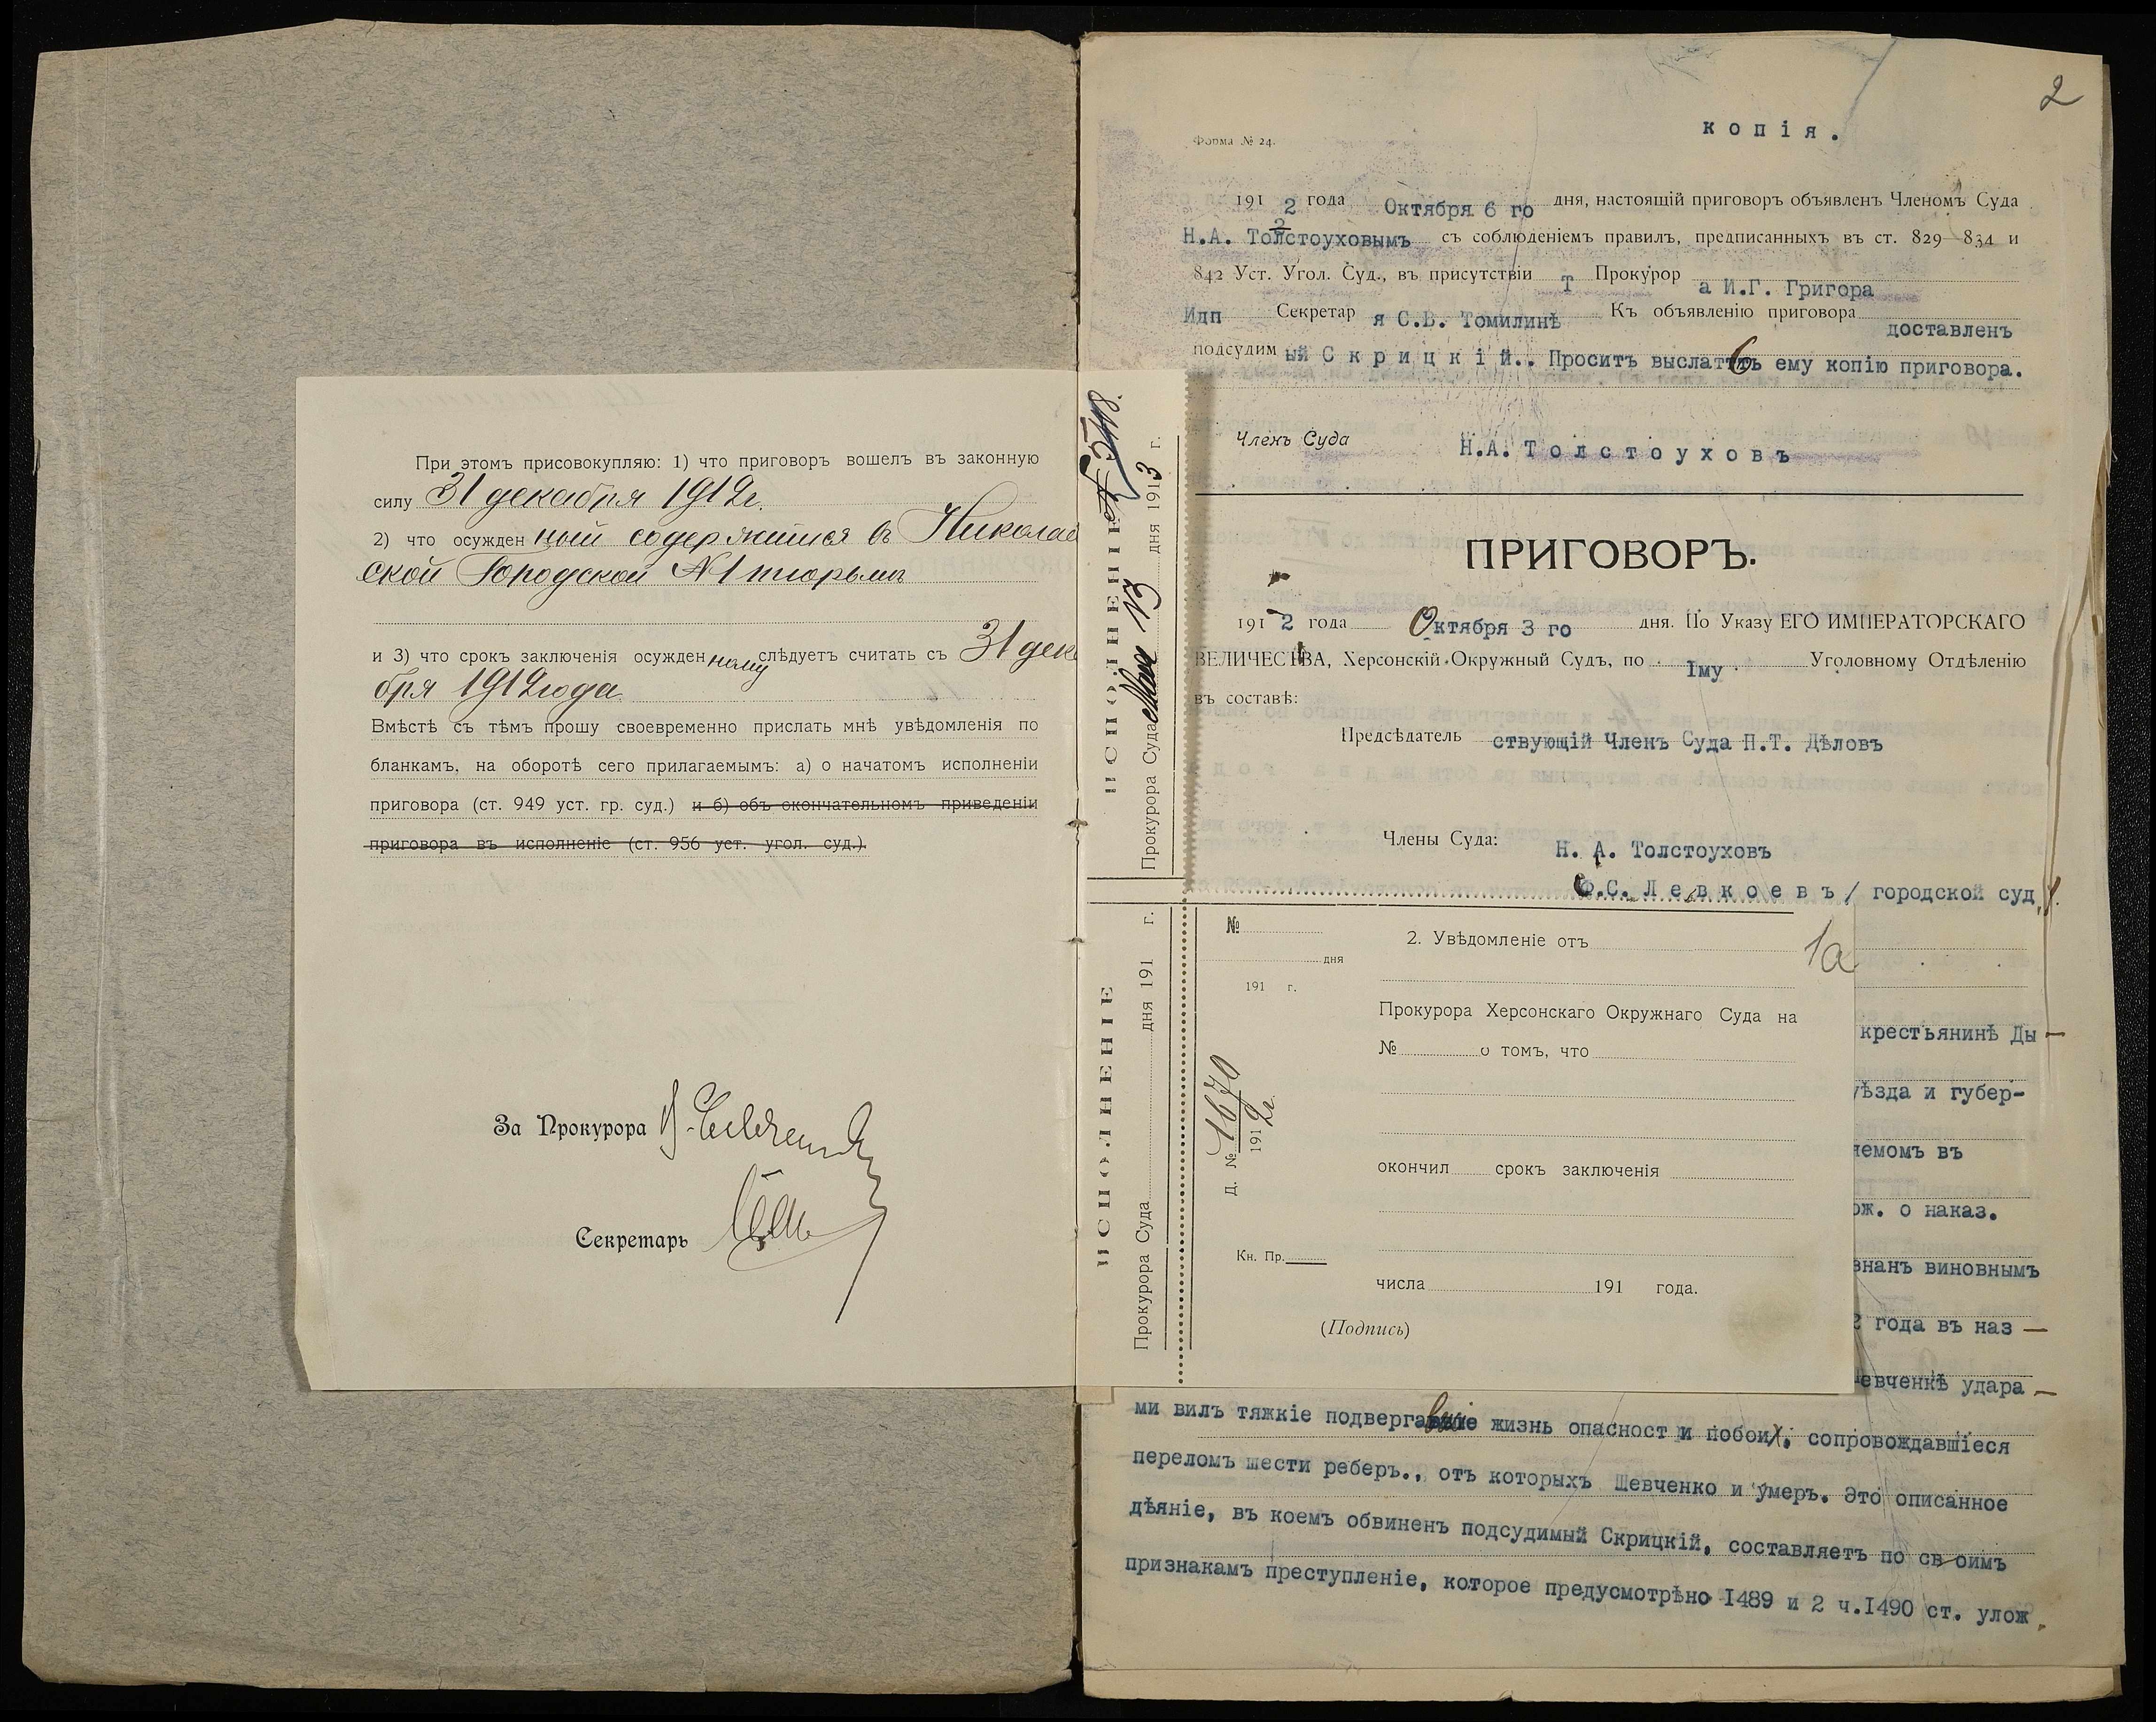 При этомъ присовокупляю: 1) что приговоръ вошелъ въ законную
силу 31 декабря 1912г.
2) что осужден ный содержится въ Николаев
ской Городской №1 тюрьмѣ
и 3) что срокъ заключенія осужден ному слѣдуетъ считать съ 31 дека
бря 1912 года
Вмѣстѣ съ тѣмъ прошу своевременно прислать мнѣ увѣдомленія по
бланкамъ, на оборотѣ сего прилагаемымъ: а) о начатомъ исполненіи
приговора (ст. 949 уст. гр. суд.) и б) объ окончательномъ приведеніи
приговора въ исполненіе (ст. 956 уст. угол. суд.).
За Прокурора
Секретарь
ИСПОЛНЕНІЕ
Прокурора Суда Мая 13 дня 1913 г.
ИСПОЛНЕНІЕ
Прокурора Суда дня 191 г.
2
копія.
Форма № 24.
191 2 года Октября 6 го дня, настоящій приговоръ объявленъ Членомъ Суда
Н.А. Толстоуховымъ съ соблюденіемъ правилъ, предписанныхъ въ ст. 829—834 и
842 Уст. Угол. Суд., въ присутствіи Т Прокурор а И.Г. Григора
Идп Секретар я С.В. Томилинѣ Къ объявленію приговора доставленъ
подсудим ый Скрицкій.. Проситъ выслать ему копію приговора.
Членъ Суда Н.А. Толстоуховъ
ПРИГОВОРЪ.
191 2 года Октября 3 го дня. По Указу ЕГО ИМПЕРАТОРСКАГО
ВЕЛИЧЕСТВА, Херсонскій Окружный Судъ, по Iму Уголовному Отдѣленію
въ составѣ:
Предсѣдатель ствующій Членъ Суда П.Т. Дѣловъ
Члены Суда: Н. А. Толстоуховъ
Ф.С. Левкоевъ / городской суд.
№
дня
191 г.
Д. № 1670
191 2г.
Кн. Пр.
2. Увѣдомленіе отъ
1а
Прокурора Херсонскаго Окружнаго Суда на
№ о томъ, что
окончил срокъ заключенія
числа 191 года.
(Подпись)
крестьянинѣ Ды —
уѣзда и губер-
яемомъ въ
ож. о наказ.
знанъ виновнымъ
2 года въ наз —
Шевченкѣ удара —
ми вилъ тяжкіе подвергавшіе жизнь опасност и побои, сопровождавшіеся
переломъ шести реберъ., отъ которыхъ Шевченко и умеръ. Это описанное
дѣяніе, въ коемъ обвиненъ подсудимый Скрицкій, составляетъ по св оимъ
признакамъ преступленіе, которое предусмотрѣно I489 и 2 ч.I490 ст. улож.